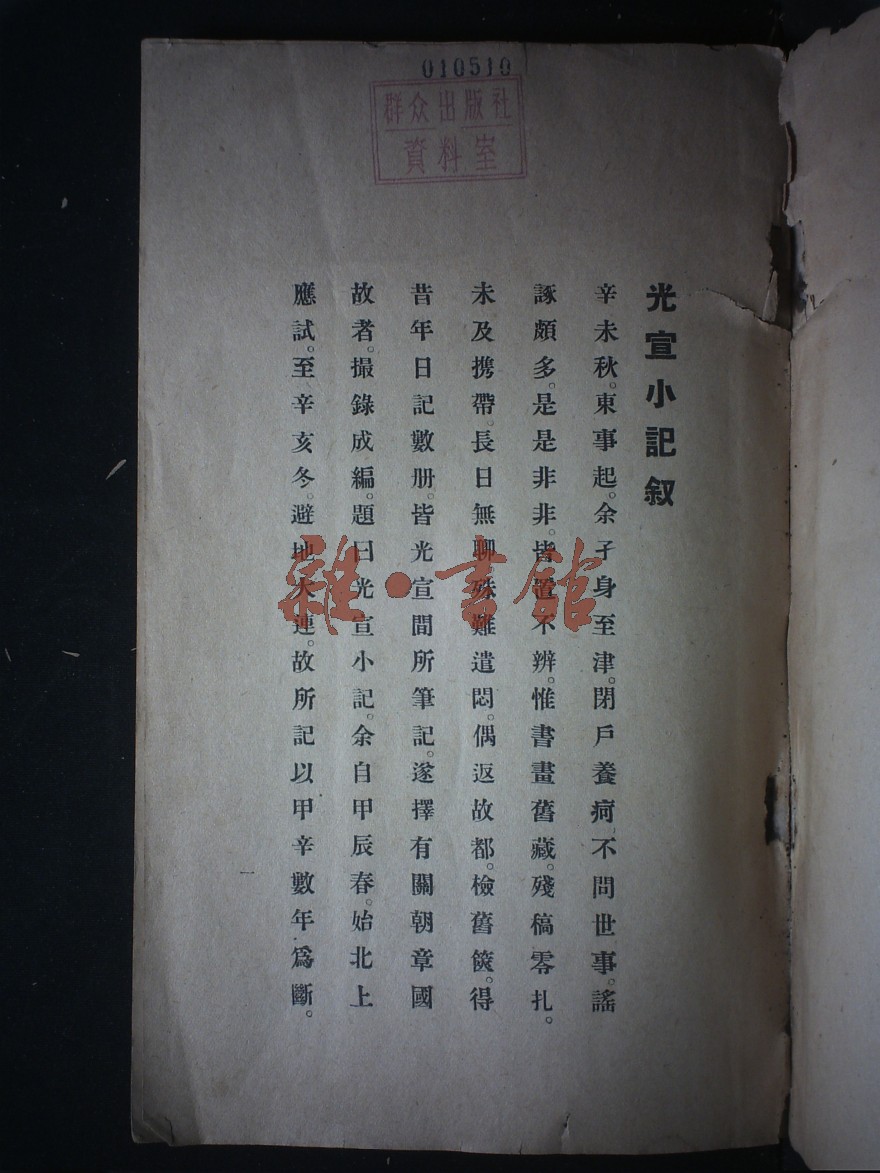 010510
群众出版社
資料室
光宣小記叙
辛未秋。東事起。余孑身至津。閉戶養疴。不問世事。謠
諑頗多。是是非非。皆置不辨。惟書畫舊藏。殘稿零扎。
未及携帶。長日無聊。殊難遣悶。偶返故都。檢舊篋。得
昔年日記數册。皆光宣間所筆記。遂擇有關朝章國
故者。撮錄成編。題曰光宣小記。余自甲辰春。始北上
應試。至辛亥冬。避地大連。故所記以甲辛數年爲斷。
一
雜·書館